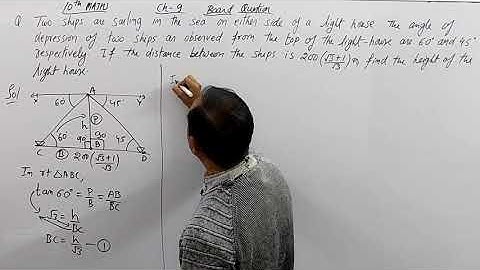 10th MATH Ch-9 Board Question
Q Two ships are sailing in the sea on either side of a light house the angle of
depression of two ships as observed from the top of the light-house are 60° and 45°
respectively. If the distance between the ships is 200(√3+1/√3) m, find the height of the
light house.
Sol
A
60° 45°
h P
60 90 90 45
C B B D
200(√3+1/√3)
In rt △ABC,
tan60° = P/B = AB/BC
√3 = h/BC
BC = h/√3 — ①
In